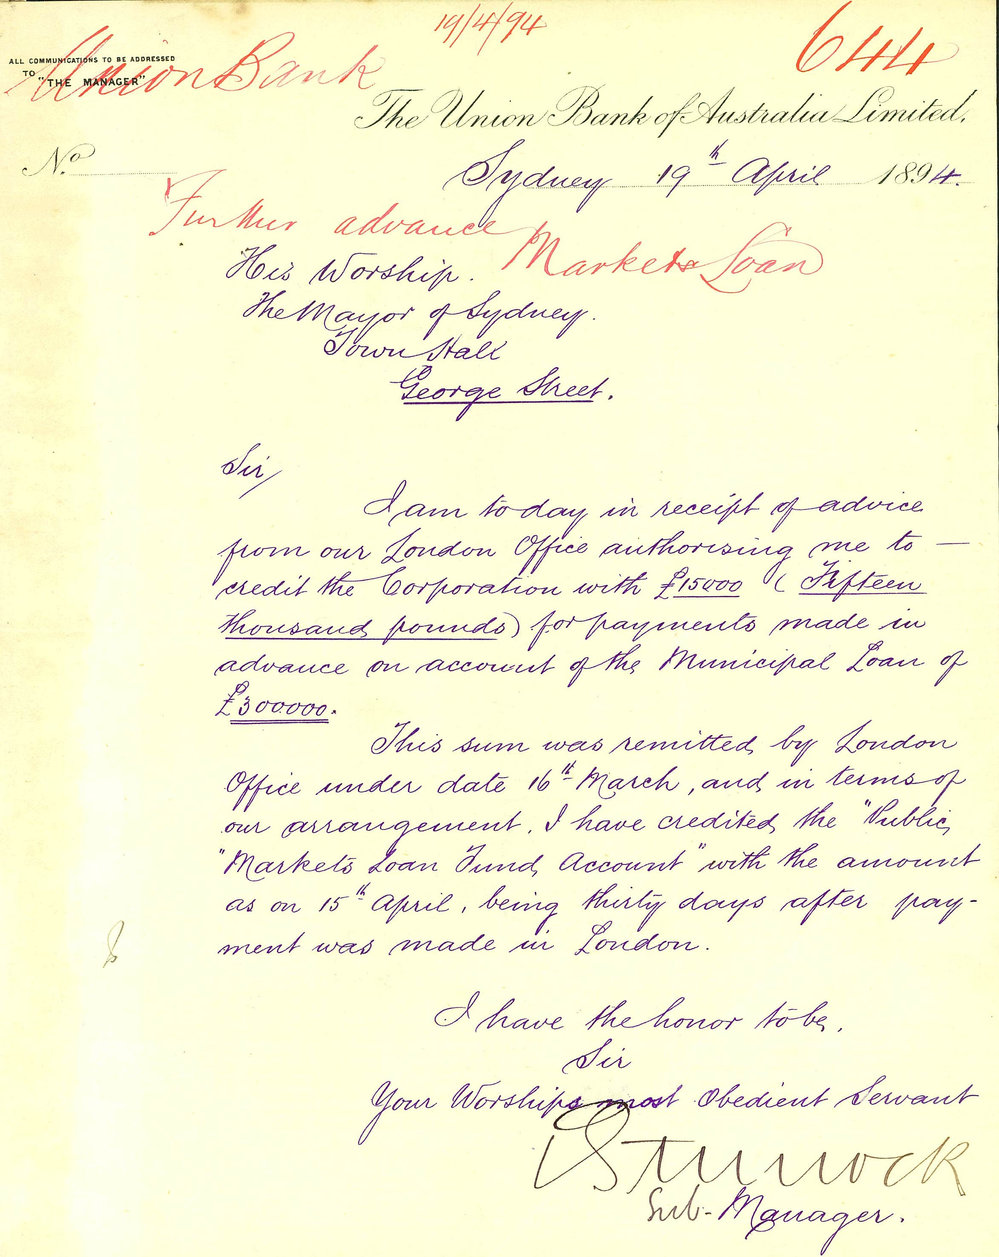 19/4/94
644
ALL COMMUNICATIONS TO BE ADDRESSED
TO "THE MANAGER"
Union Bank
The Union Bank of Australia Limited.
No.
Sydney 19th April 1894.
Further advance
Markets Loan
His Worship.
The Mayor of Sydney.
Town Hall
George Street.
Sir/
I am to day in receipt of advice
from our London Office authorising me to —
credit the Corporation with £15000 (Fifteen
thousand pounds) for payments made in
advance on account of the Municipal Loan of
£300000.
This sum was remitted by London
Office under date 16th March, and in terms of
our arrangement, I have credited the "Public
"Markets Loan Fund Account" with the amount
as on 15th April, being thirty days after pay-
ment was made in London.
I have the honor to be,
Sir
Your Worships most Obedient Servant
Sub-Manager.